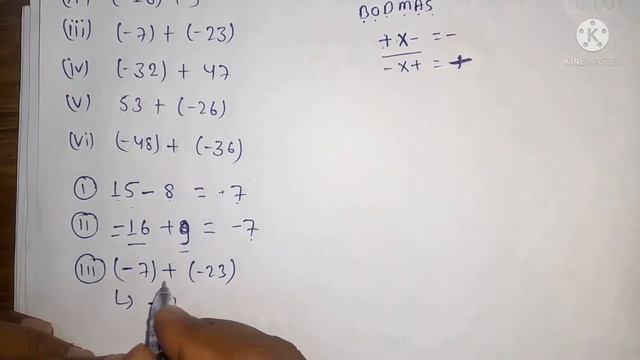 BODMAS
(iii) (-7) + (-23)
+x- = -
-x+ = +
(iv) (-32) + 47
(v) 53 + (-26)
(vi) (-48) + (-36)
(i) 15 - 8 = +7
(ii) -16 + 9 = -7
(iii) (-7) + (-23)
KINEMASTER